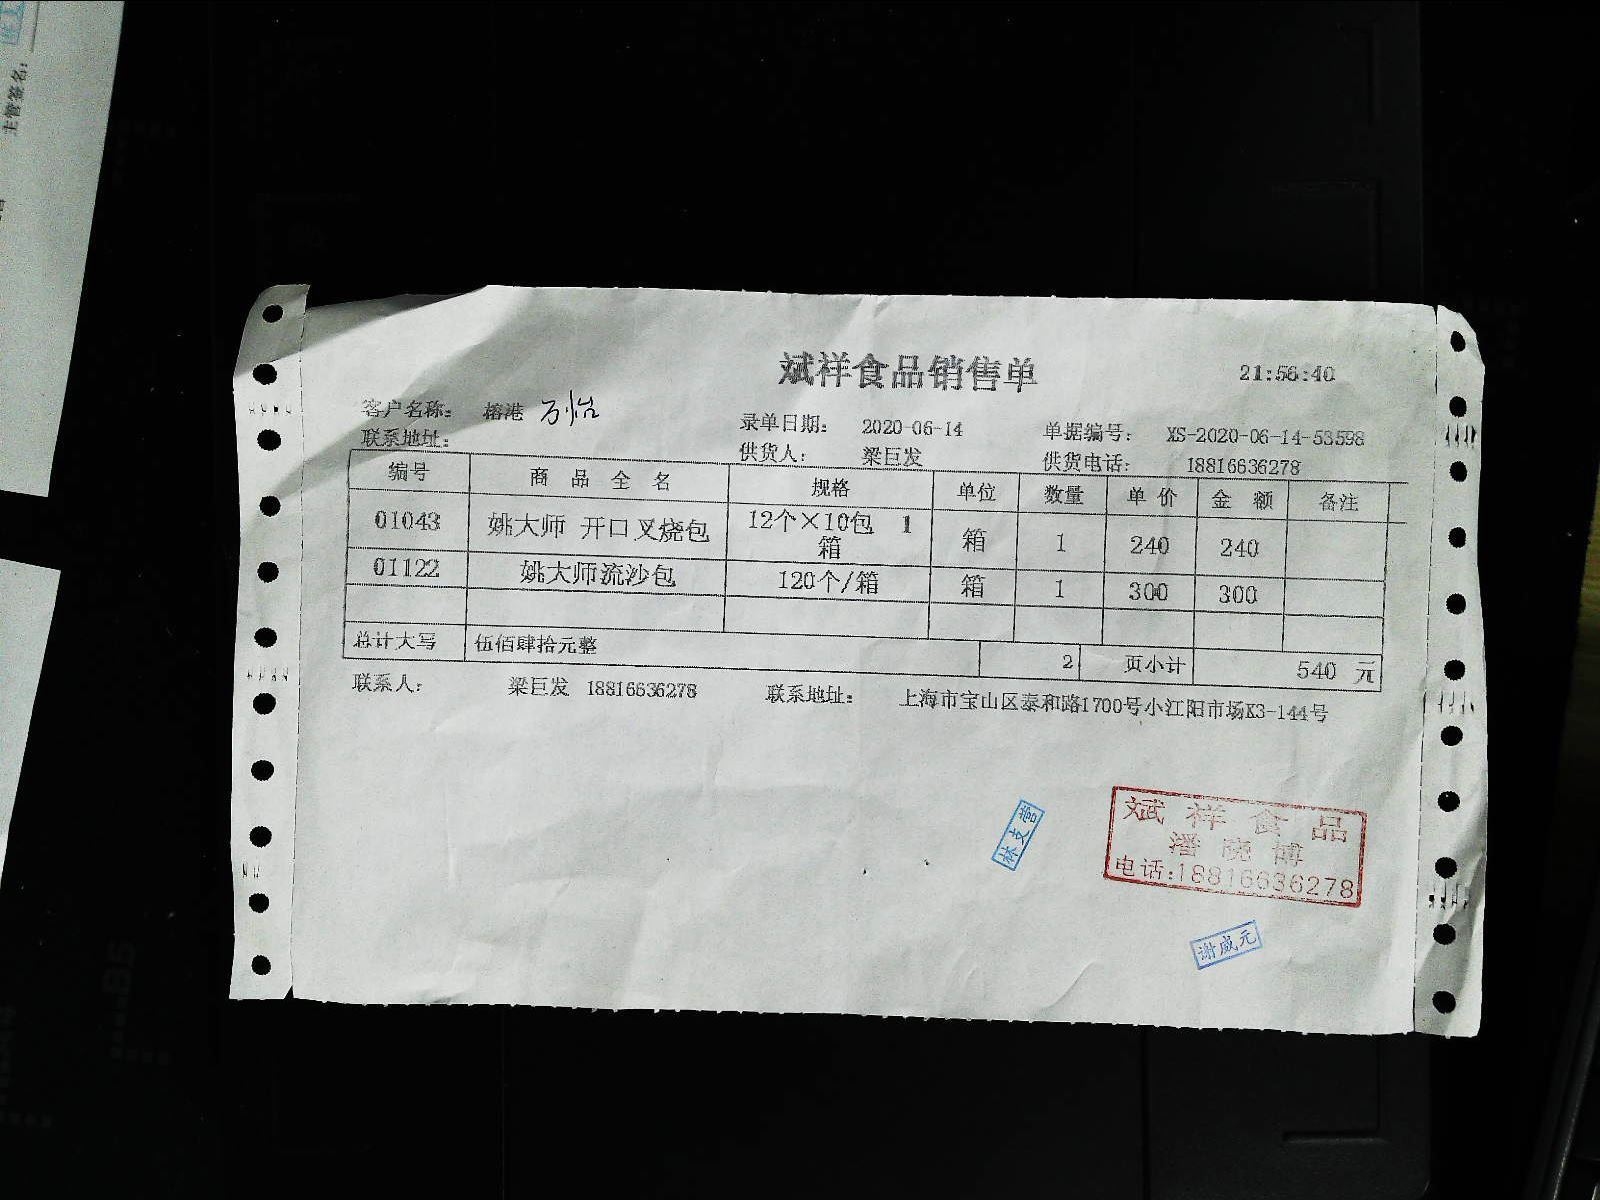 主管签名:
斌祥食品销售单
21:56:40
客户名称: 榕港 万怡
录单日期: 2020-06-14
单据编号: XS-2020-06-14-53598
联系地址:
供货人: 梁巨发
供货电话: 18816636278
编号 商 品 全 名 规格 单位 数量 单 价 金 额 备注
01043 姚大师 开口叉烧包 12个×10包 1箱 箱 1 240 240
01122 姚大师流沙包 120个/箱 箱 1 300 300
总计大写 伍佰肆拾元整 2 页小计 540 元
联系人: 梁巨发 18816636278 联系地址: 上海市宝山区泰和路1700号小江阳市场K3-144号
林支营
斌祥食品
潘晓博
电话:18816636278
谢威元